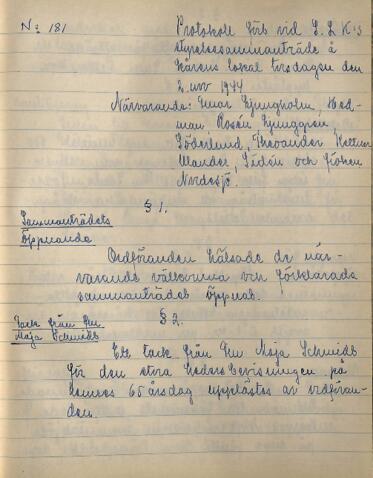 No 181
Protokoll förb vid S. L K:s
styrelsesammanträde å
Kårens lokal torsdagen den
2 nov 1944
Närvarande: Einar Ljungholm, Hed-
man, Rosén, Ljunggren,
Söderlund, Theorander, Kettner
Wlander, Lidén och fröken
Nordesjö,
§ 1.
Sammanträdets
Öppnande
Ordföranden hälsade de när-
varande välkomna och förklarade
sammanträdet öppnat.
§ 2.
Tack från Fru
Maja Schmidt
Ett tack från Fru Maja Schmidt
för den stora hedersbevisningen på
hennes 65 årsdag upplästes av ordföran-
den.